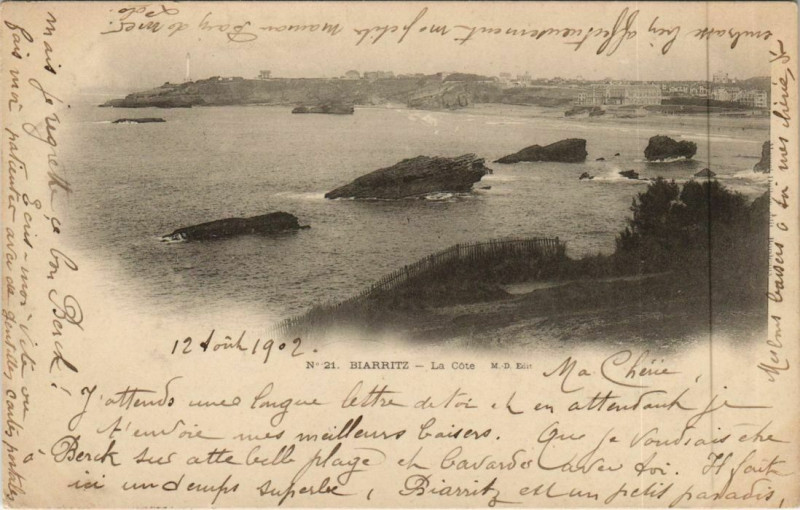 12 Août 1902.
N° 21. BIARRITZ — La Côte M. D. Edit
Ma Chérie,
J'attends une longue lettre de toi et en attendant je
t'envoie mes meilleurs baisers. Que je voudrais être à
Berck sur cette belle plage et bavarder avec toi. Il fait
ici un temps superbe, Biarritz est un petit paradis,
mais je regrette ce bon Berck!
Ecris-moi vite ou
fais moi patienter avec de gentilles cartes postales,
embrasse bien affectueusement ma petite maman
Meilleurs baisers à toi mes chéries